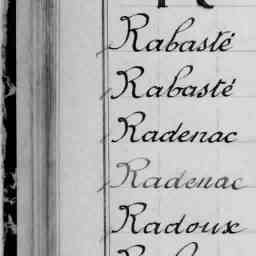 R
Rabasté
Rabasté
Radenac
Radenac
Radoux